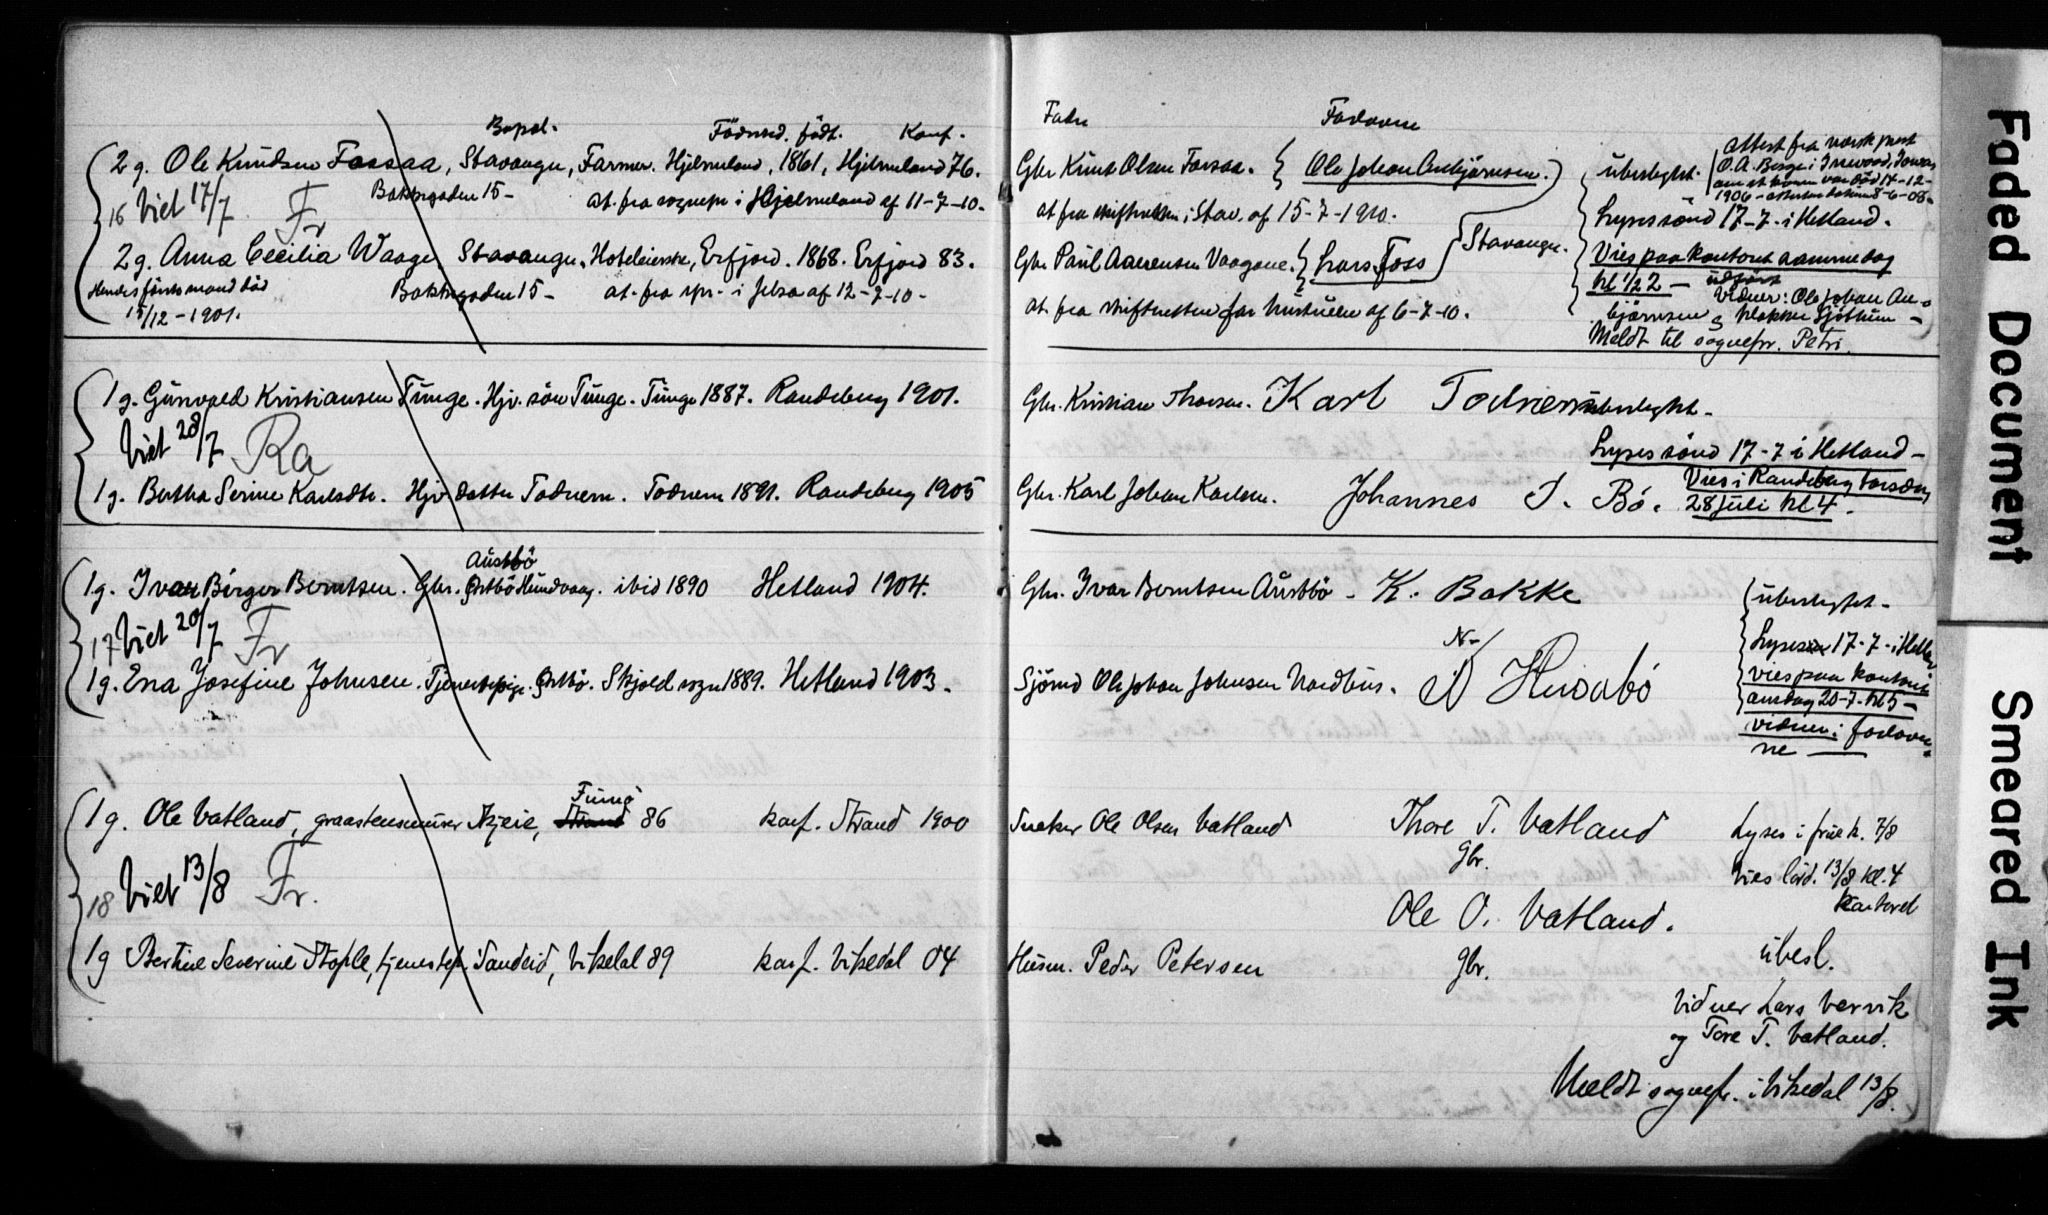 Bopæl. Födested. födt. Konf.
2 g. Ole Knudsen Fossaa, Stavanger, Farmer. Hjelmeland, 1861, Hjelmeland 76.
Bakkegaden 15 - at. fra sognepr i Hjelmeland af 11-7-10.
16 Viet 17/7 Fr
2 g. Anna Cecilia Waage, Stavanger, Hoteleierske, Erfjord. 1868. Erfjord 83.
Hendes förste mand död Bakkegaden 15 - at. fra spr. i Jelsa af 12-7-10-
15/12-1901.
1 g. Gunvald Kristiansen Tunge. Hjv. sön Tunge. Tunge 1887. Randeberg 1901.
Viet 28/7 Ra
1 g. Bertha Serine Karlsdtr. Hjv datter Todnem. Todnem 1891. Randeberg 1905
Austbö
1g. Ivar Birger Berntsen. Gbr. Östbö Hundvaag. ibid 1890 Hetland 1904.
17 Viet 20/7 Fr
1g. Ena Josefine Johnsen. Tjenestepige. Östbö. Skjold sogn 1889. Hetland 1903.
Funnö
1 g. Ole Vatland, graastensmurer Azjeie, Strand 86 konf. Strand 1900
18 Viet 13/8 Fr.
1 g Bertine Severine Stople, tjenestep. Sandeid, Vikedal 89 konf. Vikedal 04
Fader Forlovere
Gbr Knut Olsen Fossaa. Ole Johan Anbjörnsen.
at fra skifteretten i Stav. af 15-7-1910.
Gbr. Paul Aarensen Vaagane. Lars Foss Stavanger.
at. fra skifteretten for af 6-7-10.
ubeslegt. attest fra norsk prest
O. A. Berge i Inwood, Iowa
om at konen var död 17-12-
1906 - attesten datum 8-6-08-
Lyses sönd 17-7- i Hetland.
Vies paa kontoret samme dag
kl 1/2 2 - udfört
Vidner: Ole Johan An-
björnsen og klokker Sjöthun -
Meldt til sognepr. Petri.
Gbr. Kristian Thorsen. Karl Todnem ubeslegt.
Lyses sönd 17-7 i Hetland -
Gbr. Karl Johan Karlsen. Johannes I. Bö.
Vies i Randeberg torsdag
28 juli kl 4.
Gbr. Ivar Berntsen Austbö - K. Bakke
ubeslegtet -
Lyses 17-7- i Hetl
Sjömd Ole Johan Johnsen Nordhus. N- Husabö
vies paa kontoret
onsdag 20-7- kl 5 -
vidner: forlover-
ne
Snekker Ole Olsen Vatland Thore T. Vatland Lyses i friek. 7/8
Gbr. Vies lörd. 13/8 kl. 4
Kontoret
Ole O. Vatland.
Husm. Peder Petersen gbr. übesl.
Vidner Lars Vervik
og Tore T. Vatland.
Meldt sognepr. i Vikedal 13/8.
Faded Document
Smeared Ink